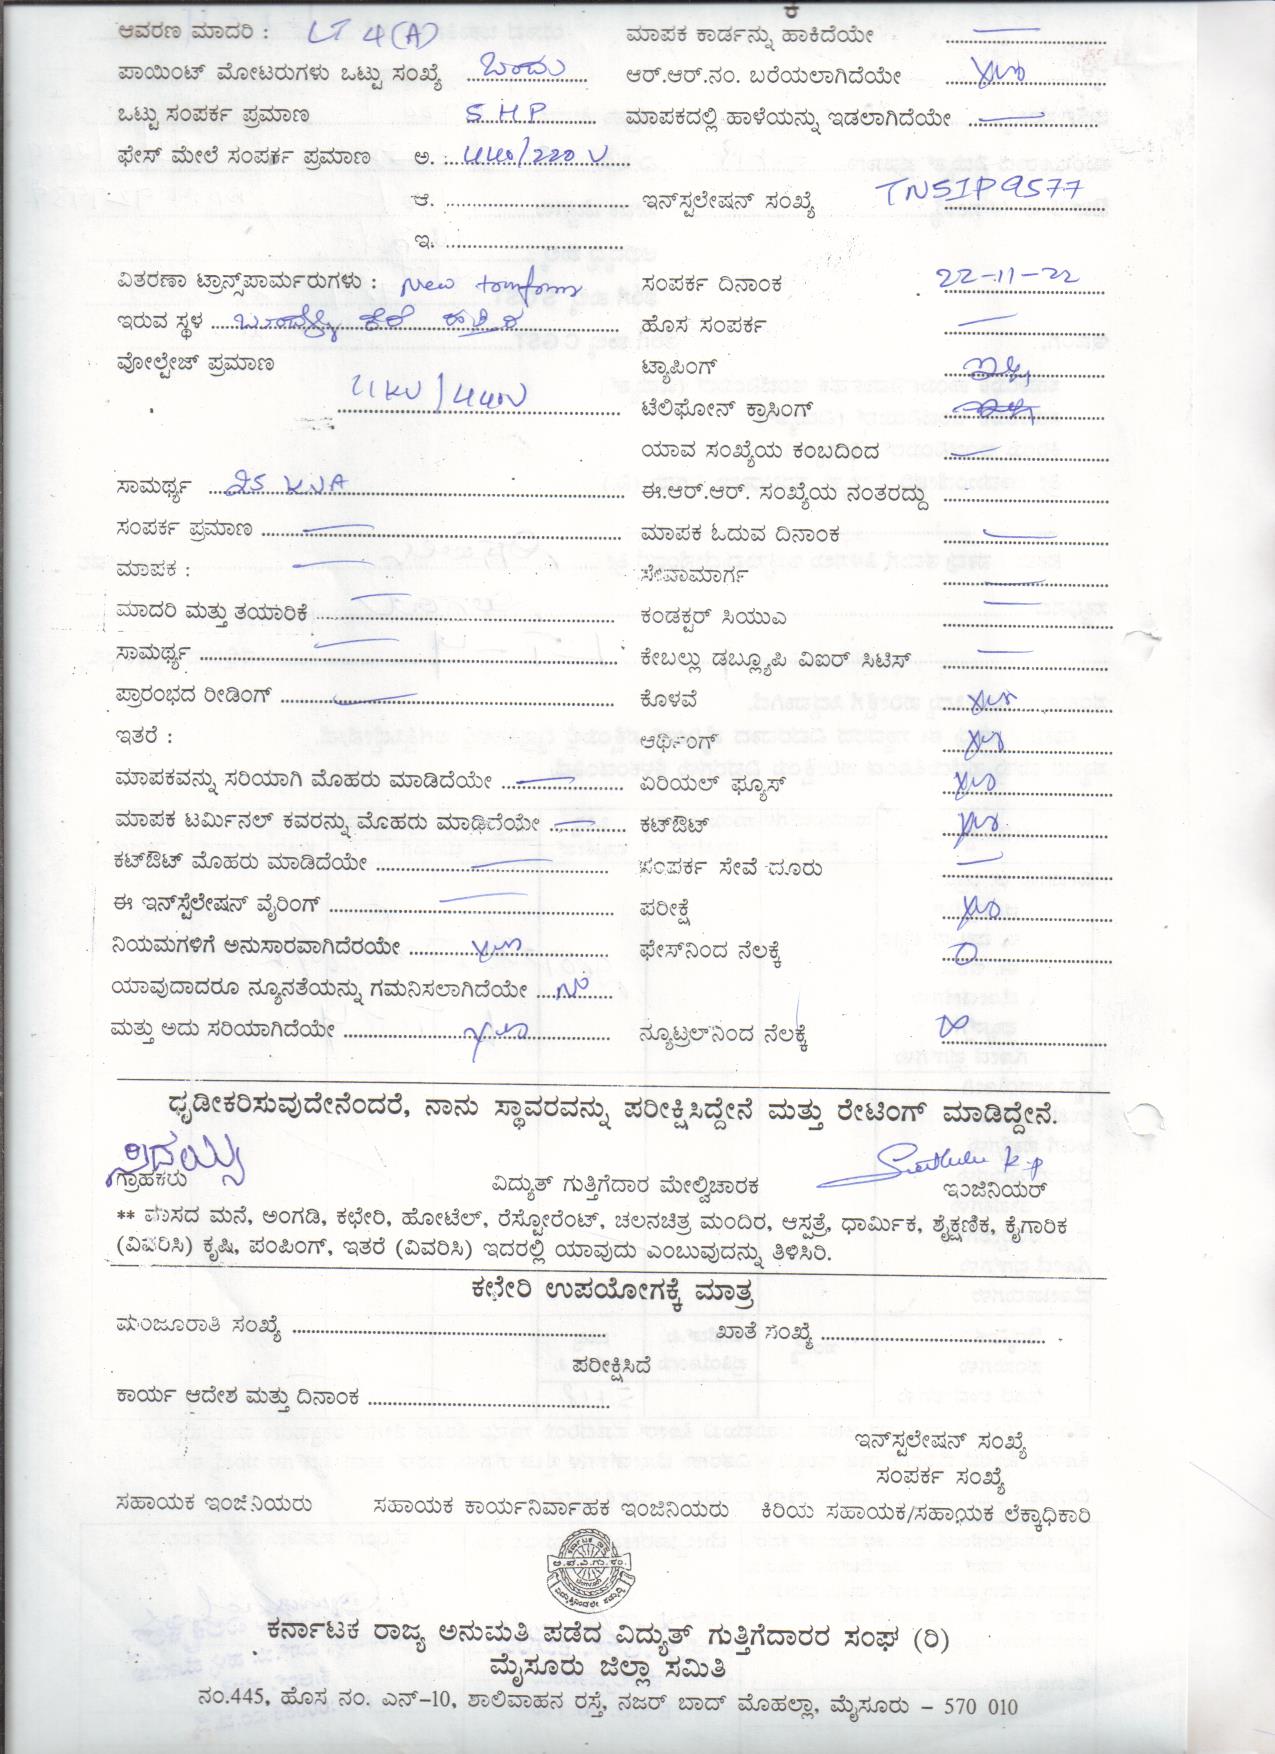 ಆವರಣ ಮಾದರಿ : LT 4(A) ಮಾಪಕ ಕಾರ್ಡನ್ನು ಹಾಕಿದೆಯೇ —
ಪಾಯಿಂಟ್ ಮೋಟರುಗಳು ಒಟ್ಟು ಸಂಖ್ಯೆ ಒಂದು ಆರ್.ಆರ್.ನಂ. ಬರೆಯಲಾಗಿದೆಯೇ yes
ಒಟ್ಟು ಸಂಪರ್ಕ ಪ್ರಮಾಣ 5 HP ಮಾಪಕದಲ್ಲಿ ಹಾಳೆಯನ್ನು ಇಡಲಾಗಿದೆಯೇ —
ಫೇಸ್ ಮೇಲೆ ಸಂಪರ್ಕ ಪ್ರಮಾಣ ಅ. : 440/220 V
ಆ. ಇನ್‌ಸ್ಟಲೇಷನ್ ಸಂಖ್ಯೆ TNSIP9577
ಇ.
ವಿತರಣಾ ಟ್ರಾನ್ಸ್‌ಪಾರ್ಮರುಗಳು : New ಸಂಪರ್ಕ ದಿನಾಂಕ 22-11-22
ಇರುವ ಸ್ಥಳ ಕೆರೆ ಹತ್ತಿರ ಹೊಸ ಸಂಪರ್ಕ —
ವೋಲ್ಟೇಜ್ ಪ್ರಮಾಣ ಟ್ಯಾಪಿಂಗ್ ಇಲ್ಲ
11KV/440V ಟೆಲಿಫೋನ್ ಕ್ರಾಸಿಂಗ್
ಯಾವ ಸಂಖ್ಯೆಯ ಕಂಬದಿಂದ —
ಸಾಮರ್ಥ್ಯ 25 KVA ಈ.ಆರ್.ಆರ್. ಸಂಖ್ಯೆಯ ನಂತರದ್ದು
ಸಂಪರ್ಕ ಪ್ರಮಾಣ — ಮಾಪಕ ಓದುವ ದಿನಾಂಕ —
ಮಾಪಕ : — ಸೇವಾಮಾರ್ಗ —
ಮಾದರಿ ಮತ್ತು ತಯಾರಿಕೆ — ಕಂಡಕ್ಟರ್ ಸಿಯುಎ —
ಸಾಮರ್ಥ್ಯ — ಕೇಬಲ್ಲು ಡಬ್ಲ್ಯೂಪಿ ವಿಐರ್ ಸಿಟಿಸ್ —
ಪ್ರಾರಂಭದ ರೀಡಿಂಗ್ — ಕೊಳವೆ yes
ಇತರೆ : ಆರ್ಥಿಂಗ್ yes
ಮಾಪಕವನ್ನು ಸರಿಯಾಗಿ ಮೊಹರು ಮಾಡಿದೆಯೇ — ಏರಿಯಲ್ ಫ್ಯೂಸ್ yes
ಮಾಪಕ ಟರ್ಮಿನಲ್ ಕವರನ್ನು ಮೊಹರು ಮಾಡಿದೆಯೇ — ಕಟ್‌ಔಟ್ yes
ಕಟ್‌ಔಟ್ ಮೊಹರು ಮಾಡಿದೆಯೇ — ಸಂಪರ್ಕ ಸೇವೆ ದೂರು —
ಈ ಇನ್‌ಸ್ಟೆಲೇಷನ್ ವೈರಿಂಗ್ — ಪರೀಕ್ಷೆ yes
ನಿಯಮಗಳಿಗೆ ಅನುಸಾರವಾಗಿದೆರಯೇ yes ಫೇಸ್‌ನಿಂದ ನೆಲಕ್ಕೆ 0
ಯಾವುದಾದರೂ ನ್ಯೂನತೆಯನ್ನು ಗಮನಿಸಲಾಗಿದೆಯೇ No
ಮತ್ತು ಅದು ಸರಿಯಾಗಿದೆಯೇ yes ನ್ಯೂಟ್ರಲ್‌ನಿಂದ ನೆಲಕ್ಕೆ ∞
ಧೃಡೀಕರಿಸುವುದೇನೆಂದರೆ, ನಾನು ಸ್ಥಾವರವನ್ನು ಪರೀಕ್ಷಿಸಿದ್ದೇನೆ ಮತ್ತು ರೇಟಿಂಗ್ ಮಾಡಿದ್ದೇನೆ.
ಗ್ರಾಹಕರು ವಿದ್ಯುತ್ ಗುತ್ತಿಗೆದಾರ ಮೇಲ್ವಿಚಾರಕ ಇಂಜಿನಿಯರ್
** ವಾಸದ ಮನೆ, ಅಂಗಡಿ, ಕಛೇರಿ, ಹೋಟೆಲ್, ರೆಸ್ಟೋರೆಂಟ್, ಚಲನಚಿತ್ರ ಮಂದಿರ, ಆಸ್ಪತ್ರೆ, ಧಾರ್ಮಿಕ, ಶೈಕ್ಷಣಿಕ, ಕೈಗಾರಿಕ
(ವಿವರಿಸಿ) ಕೃಷಿ, ಪಂಪಿಂಗ್, ಇತರೆ (ವಿವರಿಸಿ) ಇದರಲ್ಲಿ ಯಾವುದು ಎಂಬುವುದನ್ನು ತಿಳಿಸಿರಿ.
ಕಛೇರಿ ಉಪಯೋಗಕ್ಕೆ ಮಾತ್ರ
ಮಂಜೂರಾತಿ ಸಂಖ್ಯೆ ಖಾತೆ ಸಂಖ್ಯೆ
ಪರೀಕ್ಷಿಸಿದೆ
ಕಾರ್ಯ ಆದೇಶ ಮತ್ತು ದಿನಾಂಕ
ಇನ್‌ಸ್ಟಲೇಷನ್ ಸಂಖ್ಯೆ
ಸಂಪರ್ಕ ಸಂಖ್ಯೆ
ಸಹಾಯಕ ಇಂಜಿನಿಯರು ಸಹಾಯಕ ಕಾರ್ಯನಿರ್ವಾಹಕ ಇಂಜಿನಿಯರು ಕಿರಿಯ ಸಹಾಯಕ/ಸಹಾಯಕ ಲೆಕ್ಕಾಧಿಕಾರಿ
ಕರ್ನಾಟಕ ರಾಜ್ಯ ಅನುಮತಿ ಪಡೆದ ವಿದ್ಯುತ್ ಗುತ್ತಿಗೆದಾರರ ಸಂಘ (ರಿ)
ಮೈಸೂರು ಜಿಲ್ಲಾ ಸಮಿತಿ
ನಂ.445, ಹೊಸ ನಂ. ಎನ್-10, ಶಾಲಿವಾಹನ ರಸ್ತೆ, ನಜರ್ ಬಾದ್ ಮೊಹಲ್ಲಾ, ಮೈಸೂರು – 570 010